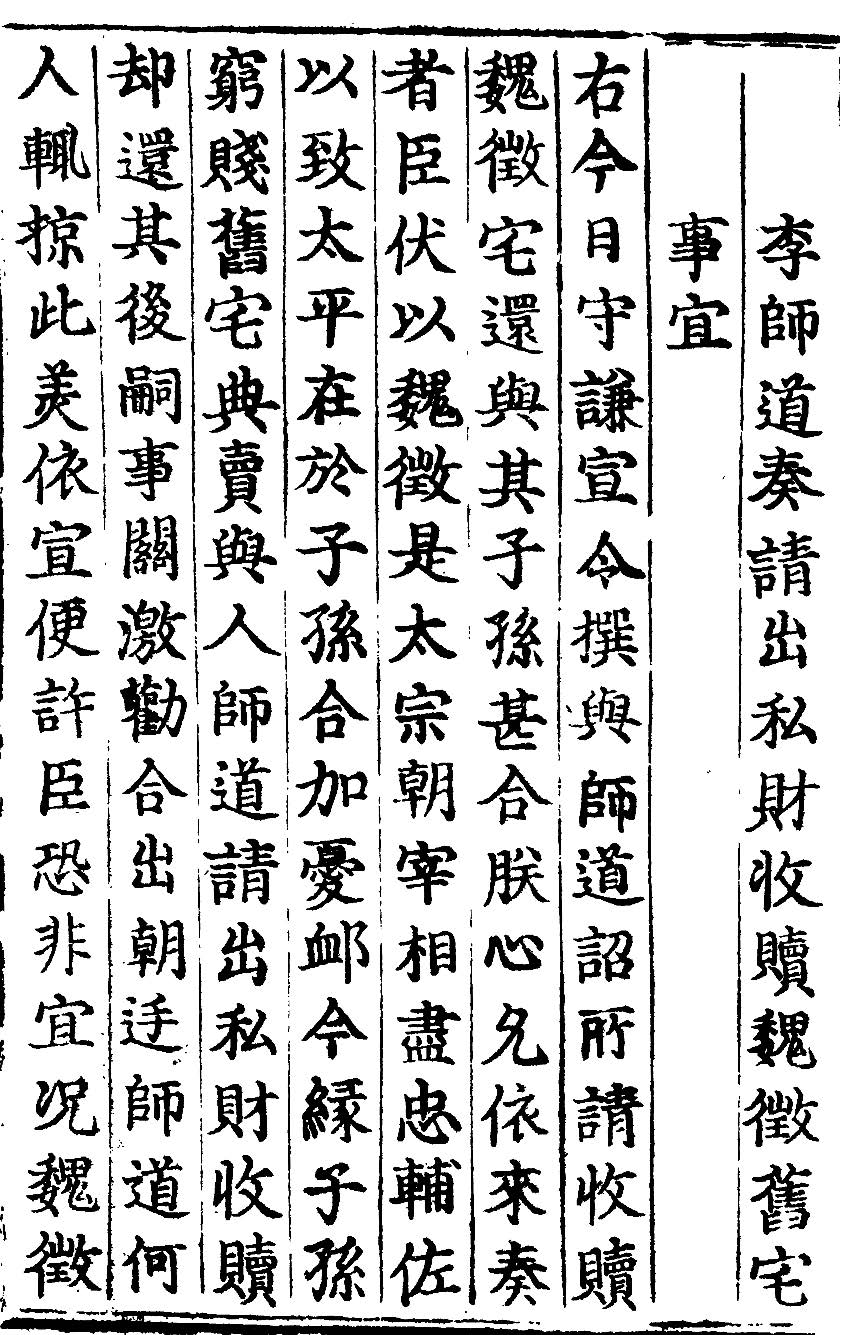 李師道奏請出私財收贖魏徵舊宅
事宜
右今日守謙宣令撰與師道詔所請收贖
魏徵宅還與其子孫甚合朕心允依來奏
者臣伏以魏徵是太宗朝宰相盡忠輔佐
以致太平在於子孫合加憂䘏今縁子孫
窮賤舊宅典賣與人師道請出私財收贖
却還其後嗣事關激勸合出朝廷師道何
人輙掠此美依宣便許臣恐非宜况魏徵